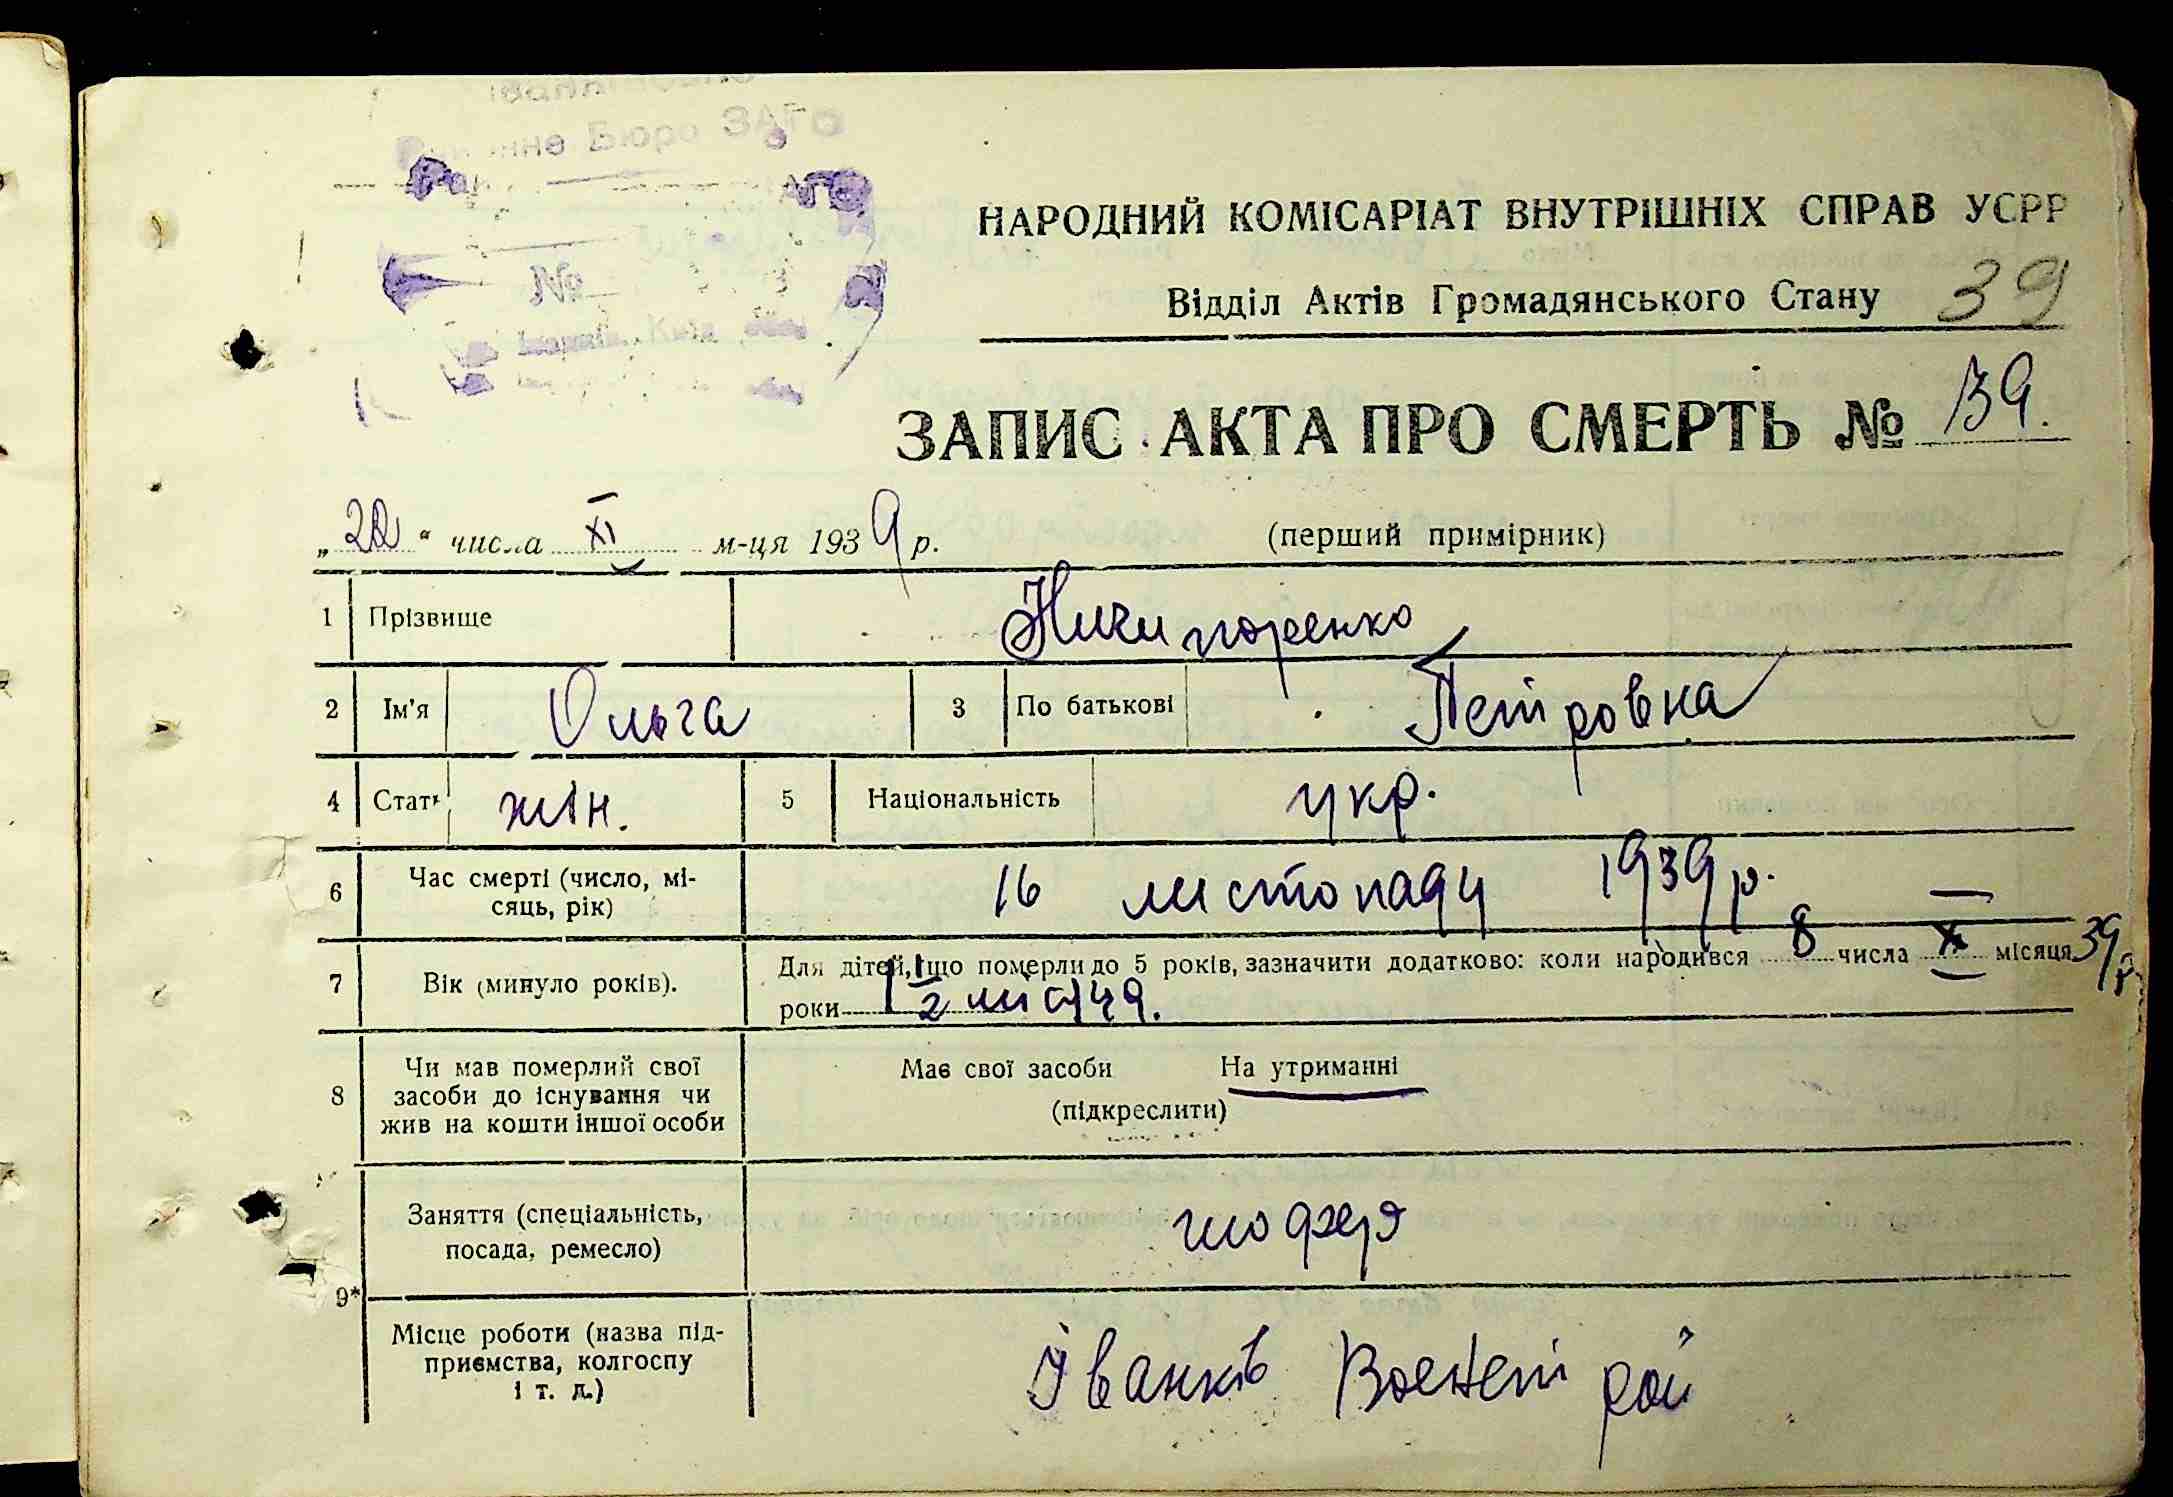 Бюро ЗАГС
№
НАРОДНИЙ КОМІСАРІАТ ВНУТРІШНІХ СПРАВ УСРР
Відділ Актів Громадянського Стану 39
ЗАПИС АКТА ПРО СМЕРТЬ № 39.
„22" числа XI м-ця 1939 р. (перший примірник)
1 Прізвище Ничипоренко
2 Ім'я Ольга 3 По батькові Петровна
4 Стать жін. 5 Національність укр.
6 Час смерті (число, мі-
сяць, рік) 16 листопаду 1939 р.
7 Вік (минуло років). Для дітей, що померли до 5 років, зазначити додатково: коли народився 8 числа X місяця 39 р
роки 1 1/2 місяця.
8 Чи мав померлий свої
засоби до існування чи
жив на кошти іншої особи
Має свої засоби На утриманні
(підкреслити)
9*
Заняття (спеціальність,
посада, ремесло) шофера
Місце роботи (назва під-
приємства, колгоспу
і т. д.) Іванків